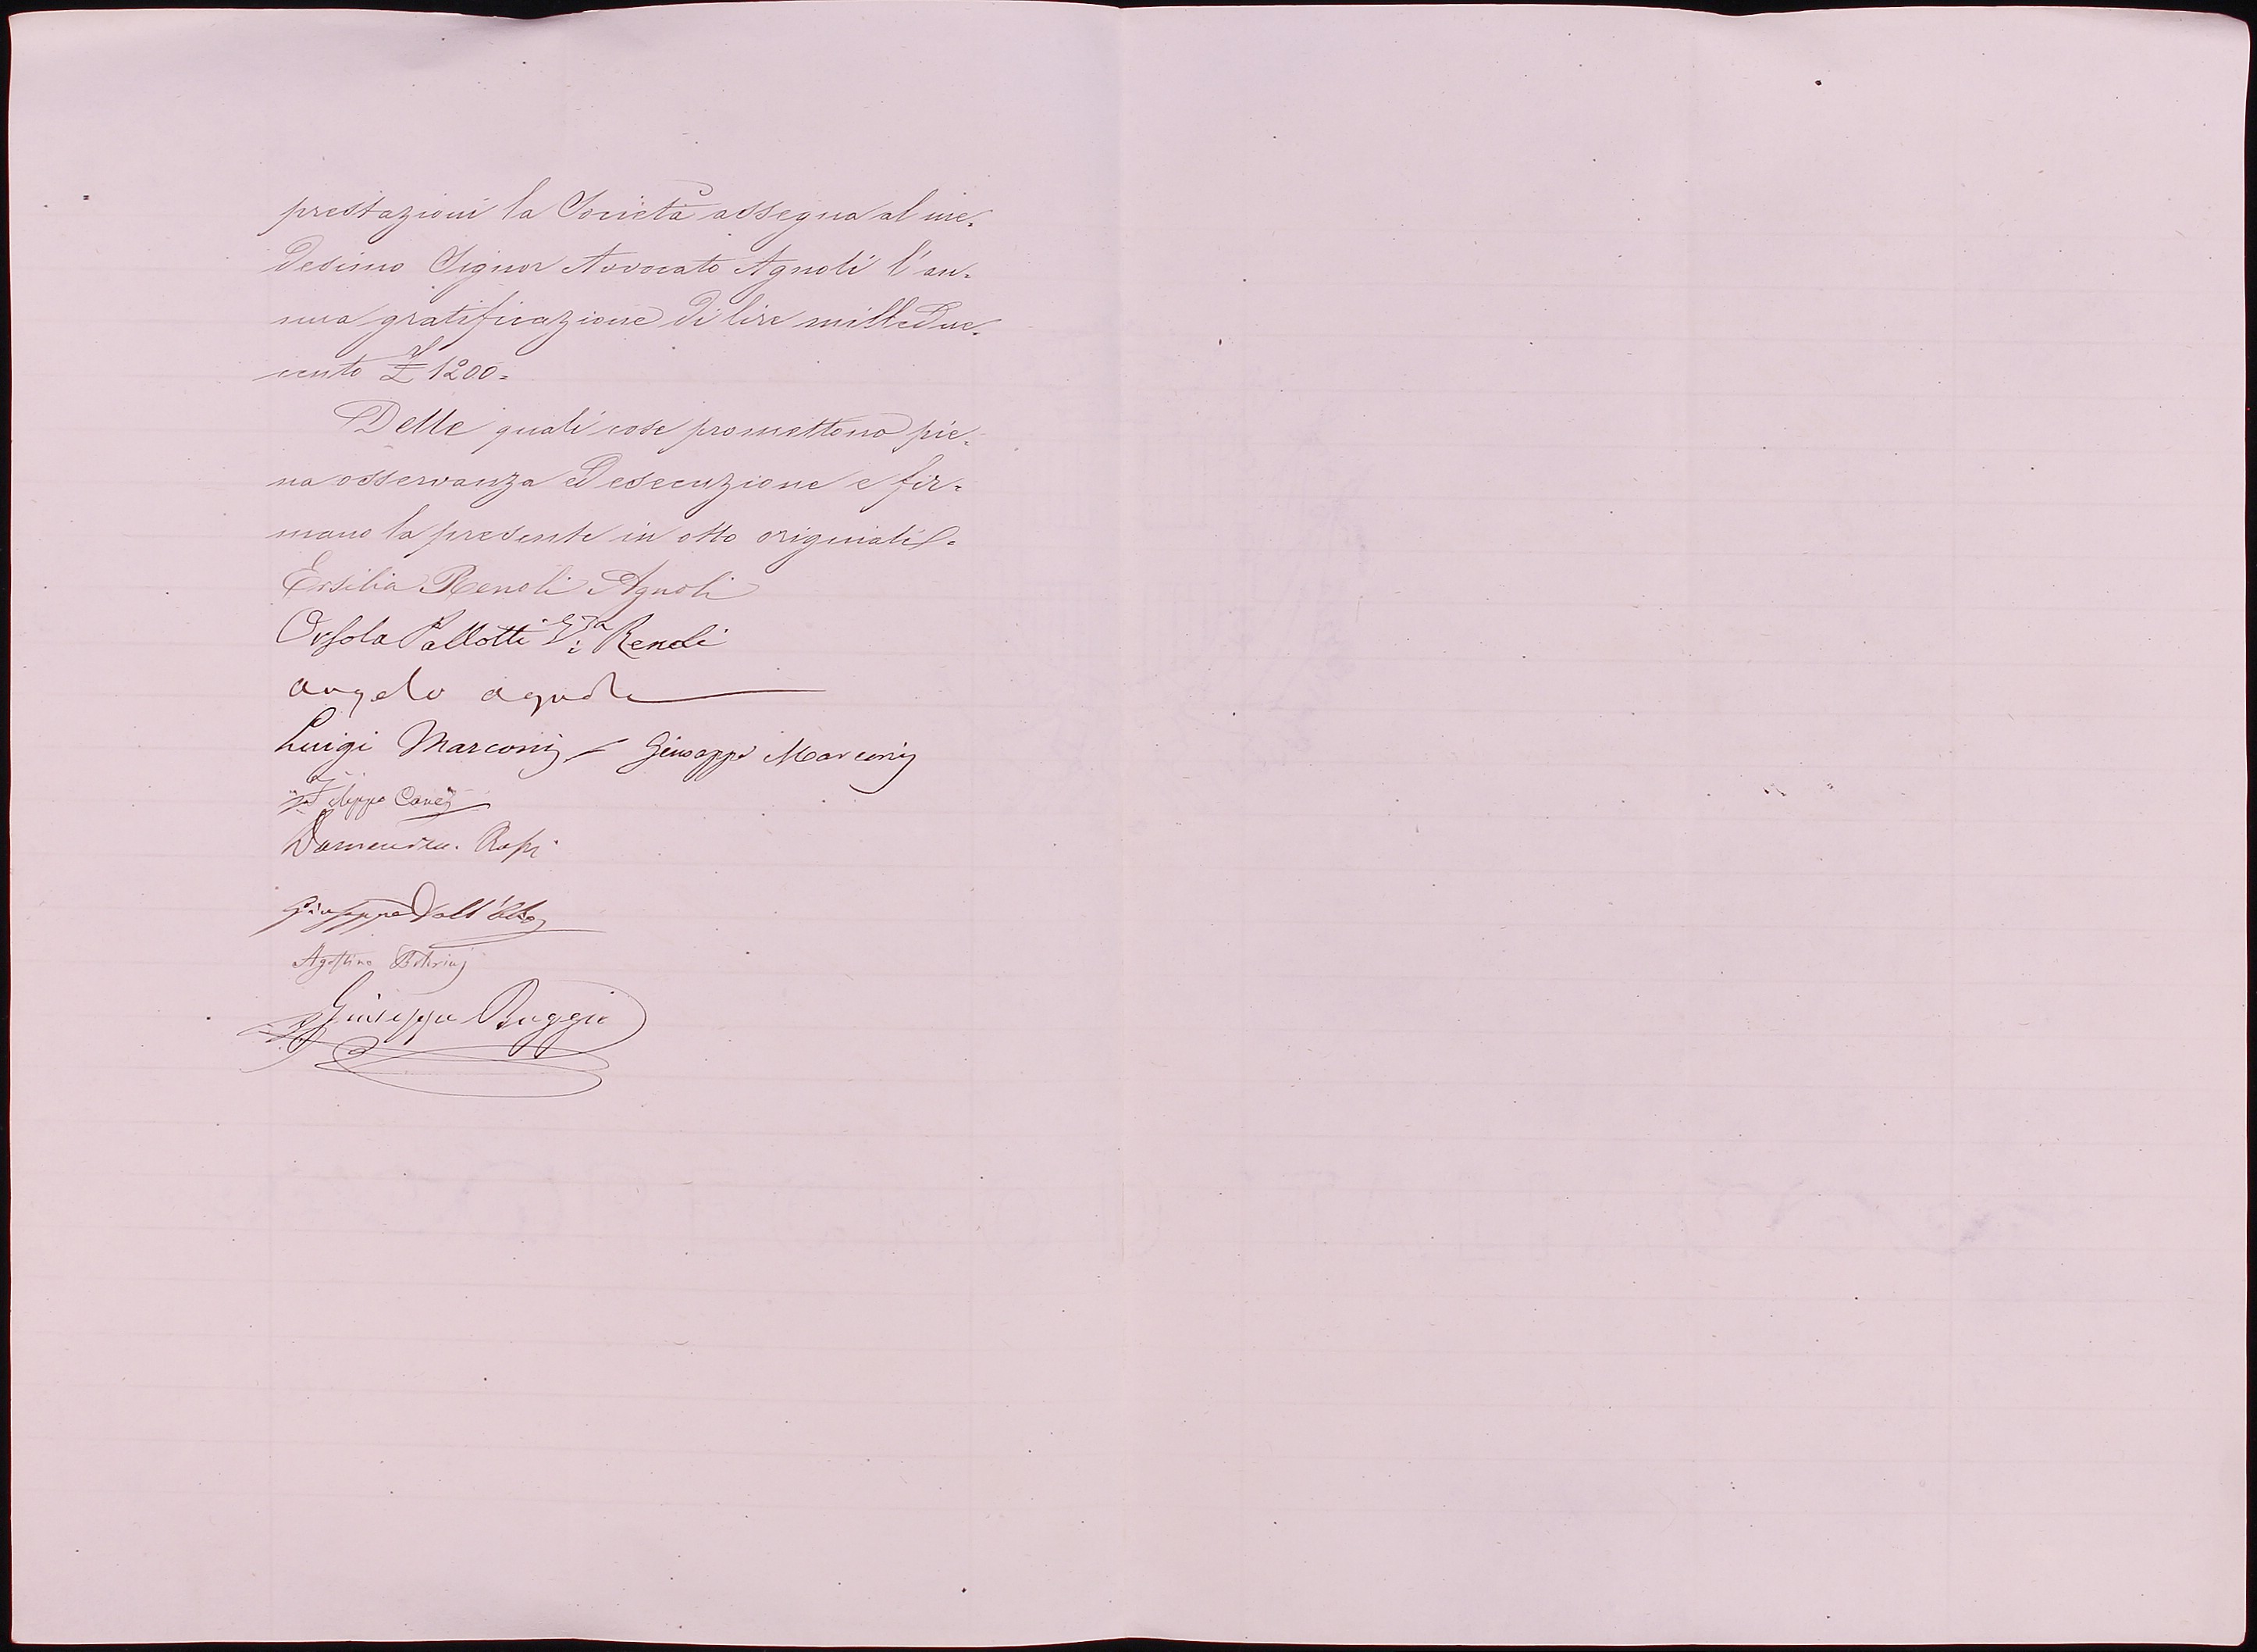 prestazioni la Società assegna al me=
desimo Signor Avvocato Agnoli l'an=
nua gratificazione di lire milledue=
cento £ 1200=
Delle quali cose promettono pie=
na osservanza ed esecuzione e fir=
mano la presente in otto originali=
Ersilia Renoli Agnoli
Orsola Pallotti Renoli
Angelo Agnoli
Luigi Marconi Giuseppe Marconi
Filippo Canè
Domenico
Giuseppe Dall'Olio
Agostino
Giuseppe Baggio